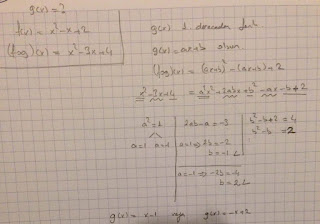 g(x) = ?
f(x) = x² - x + 2
(fog)(x) = x² - 3x + 4
g(x) 1. dereceden fonk
g(x) = ax + b olsun.
(fog)(x) = (ax+b)² - (ax+b) + 2
x² - 3x + 4 = a²x² + 2abx + b² - ax - b + 2
a² = 1
a=1 a=-1
2ab - a = -3
a=1 ⇒ 2b = -2
b = -1
a=-1 ⇒ -2b = -4
b = 2
b² - b + 2 = 4
b² - b = 2
g(x) = x - 1 veya g(x) = -x + 2